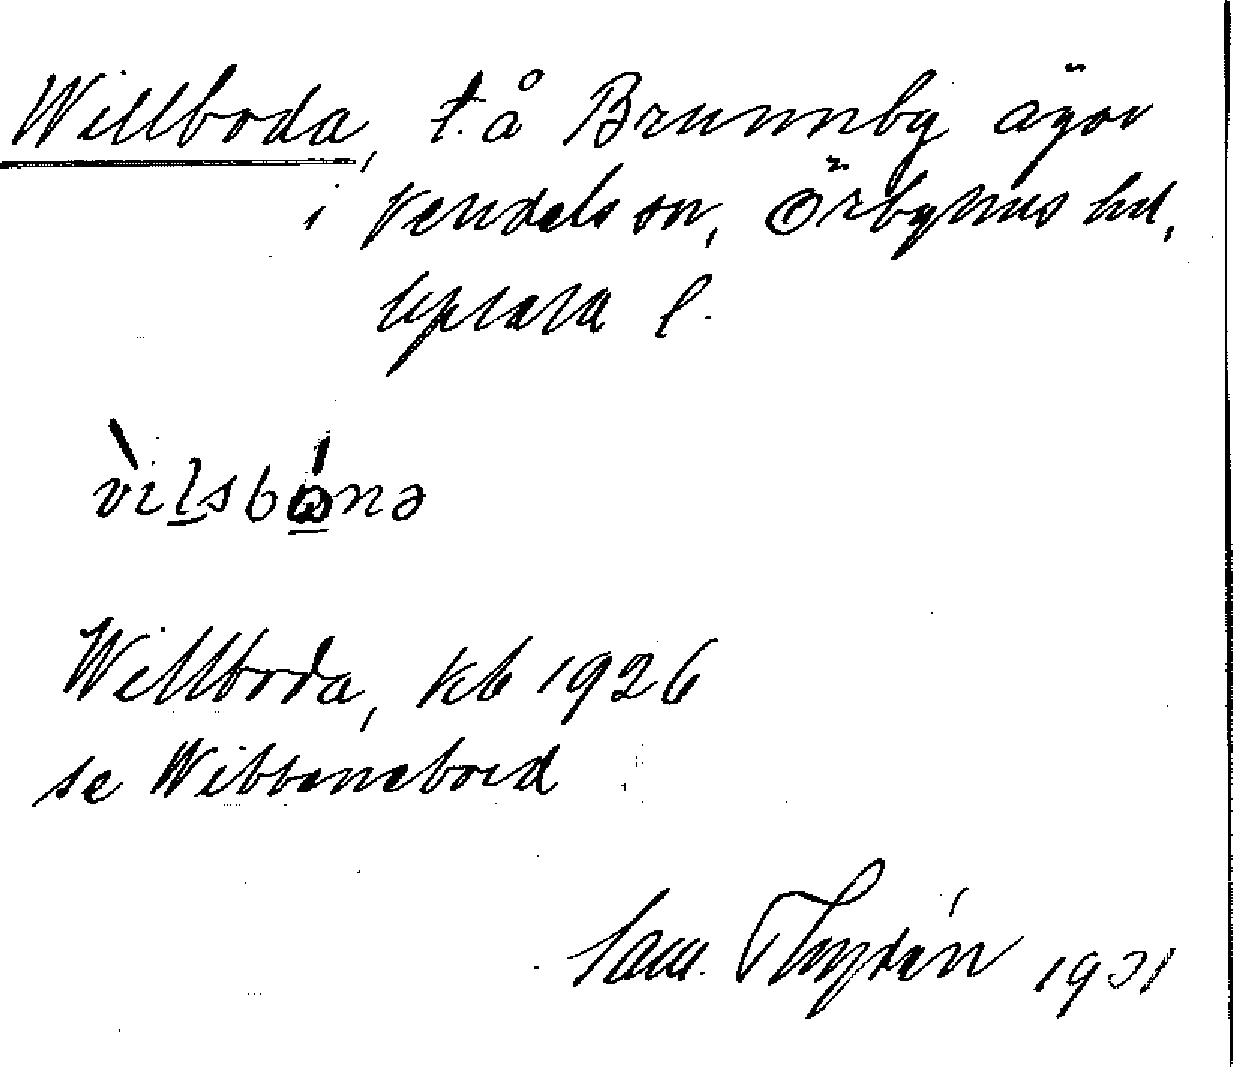 Willboda, t. å Brunnby ägor
i Vendels sn, Örbyhus hd,
Upsala l.
vilsbonə
Willboda, kb 1926
se
Sam. Thydén 1931